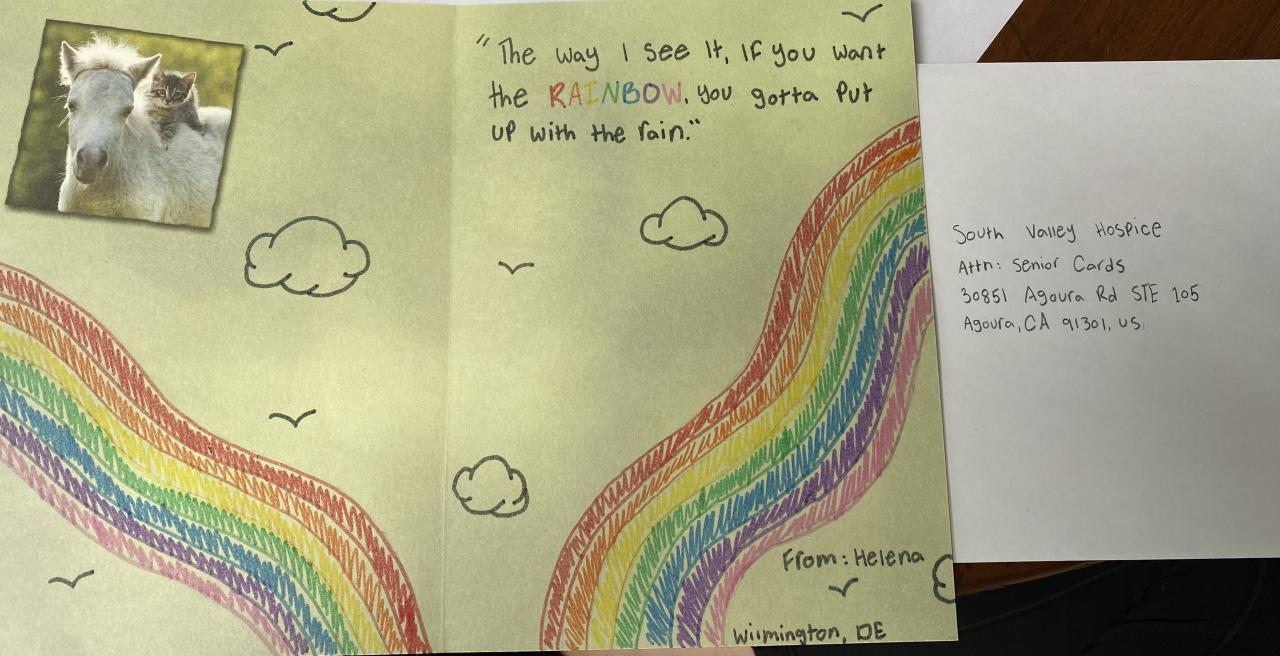 "The way I see It, If you want
the RAINBOW, you gotta Put
UP with the rain."
From: Helena
Wilmington, DE
South Valley Hospice
Attn: Senior Cards
30851 Agoura Rd STE 105
Agoura, CA 91301, US